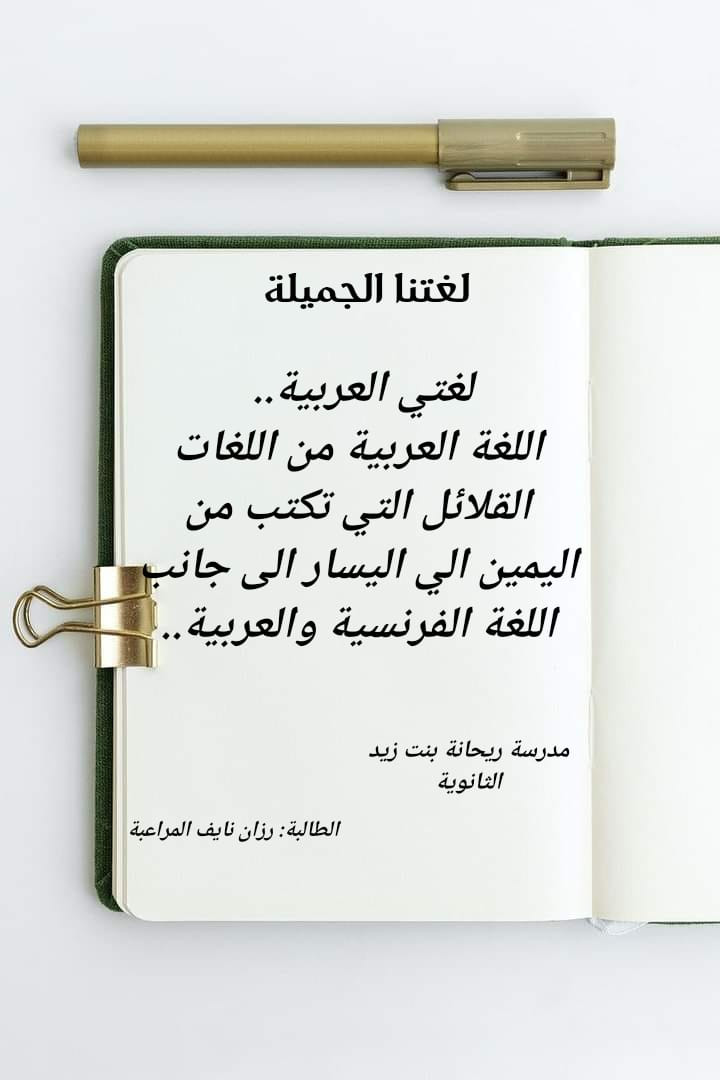 لغتنا الجميلة
لغتي العربية..
اللغة العربية من اللغات
القلائل التي تكتب من
اليمين الي اليسار الى جانب
اللغة الفرنسية والعربية..
مدرسة ريحانة بنت زيد
الثانوية
الطالبة: رزان نايف المراعبة